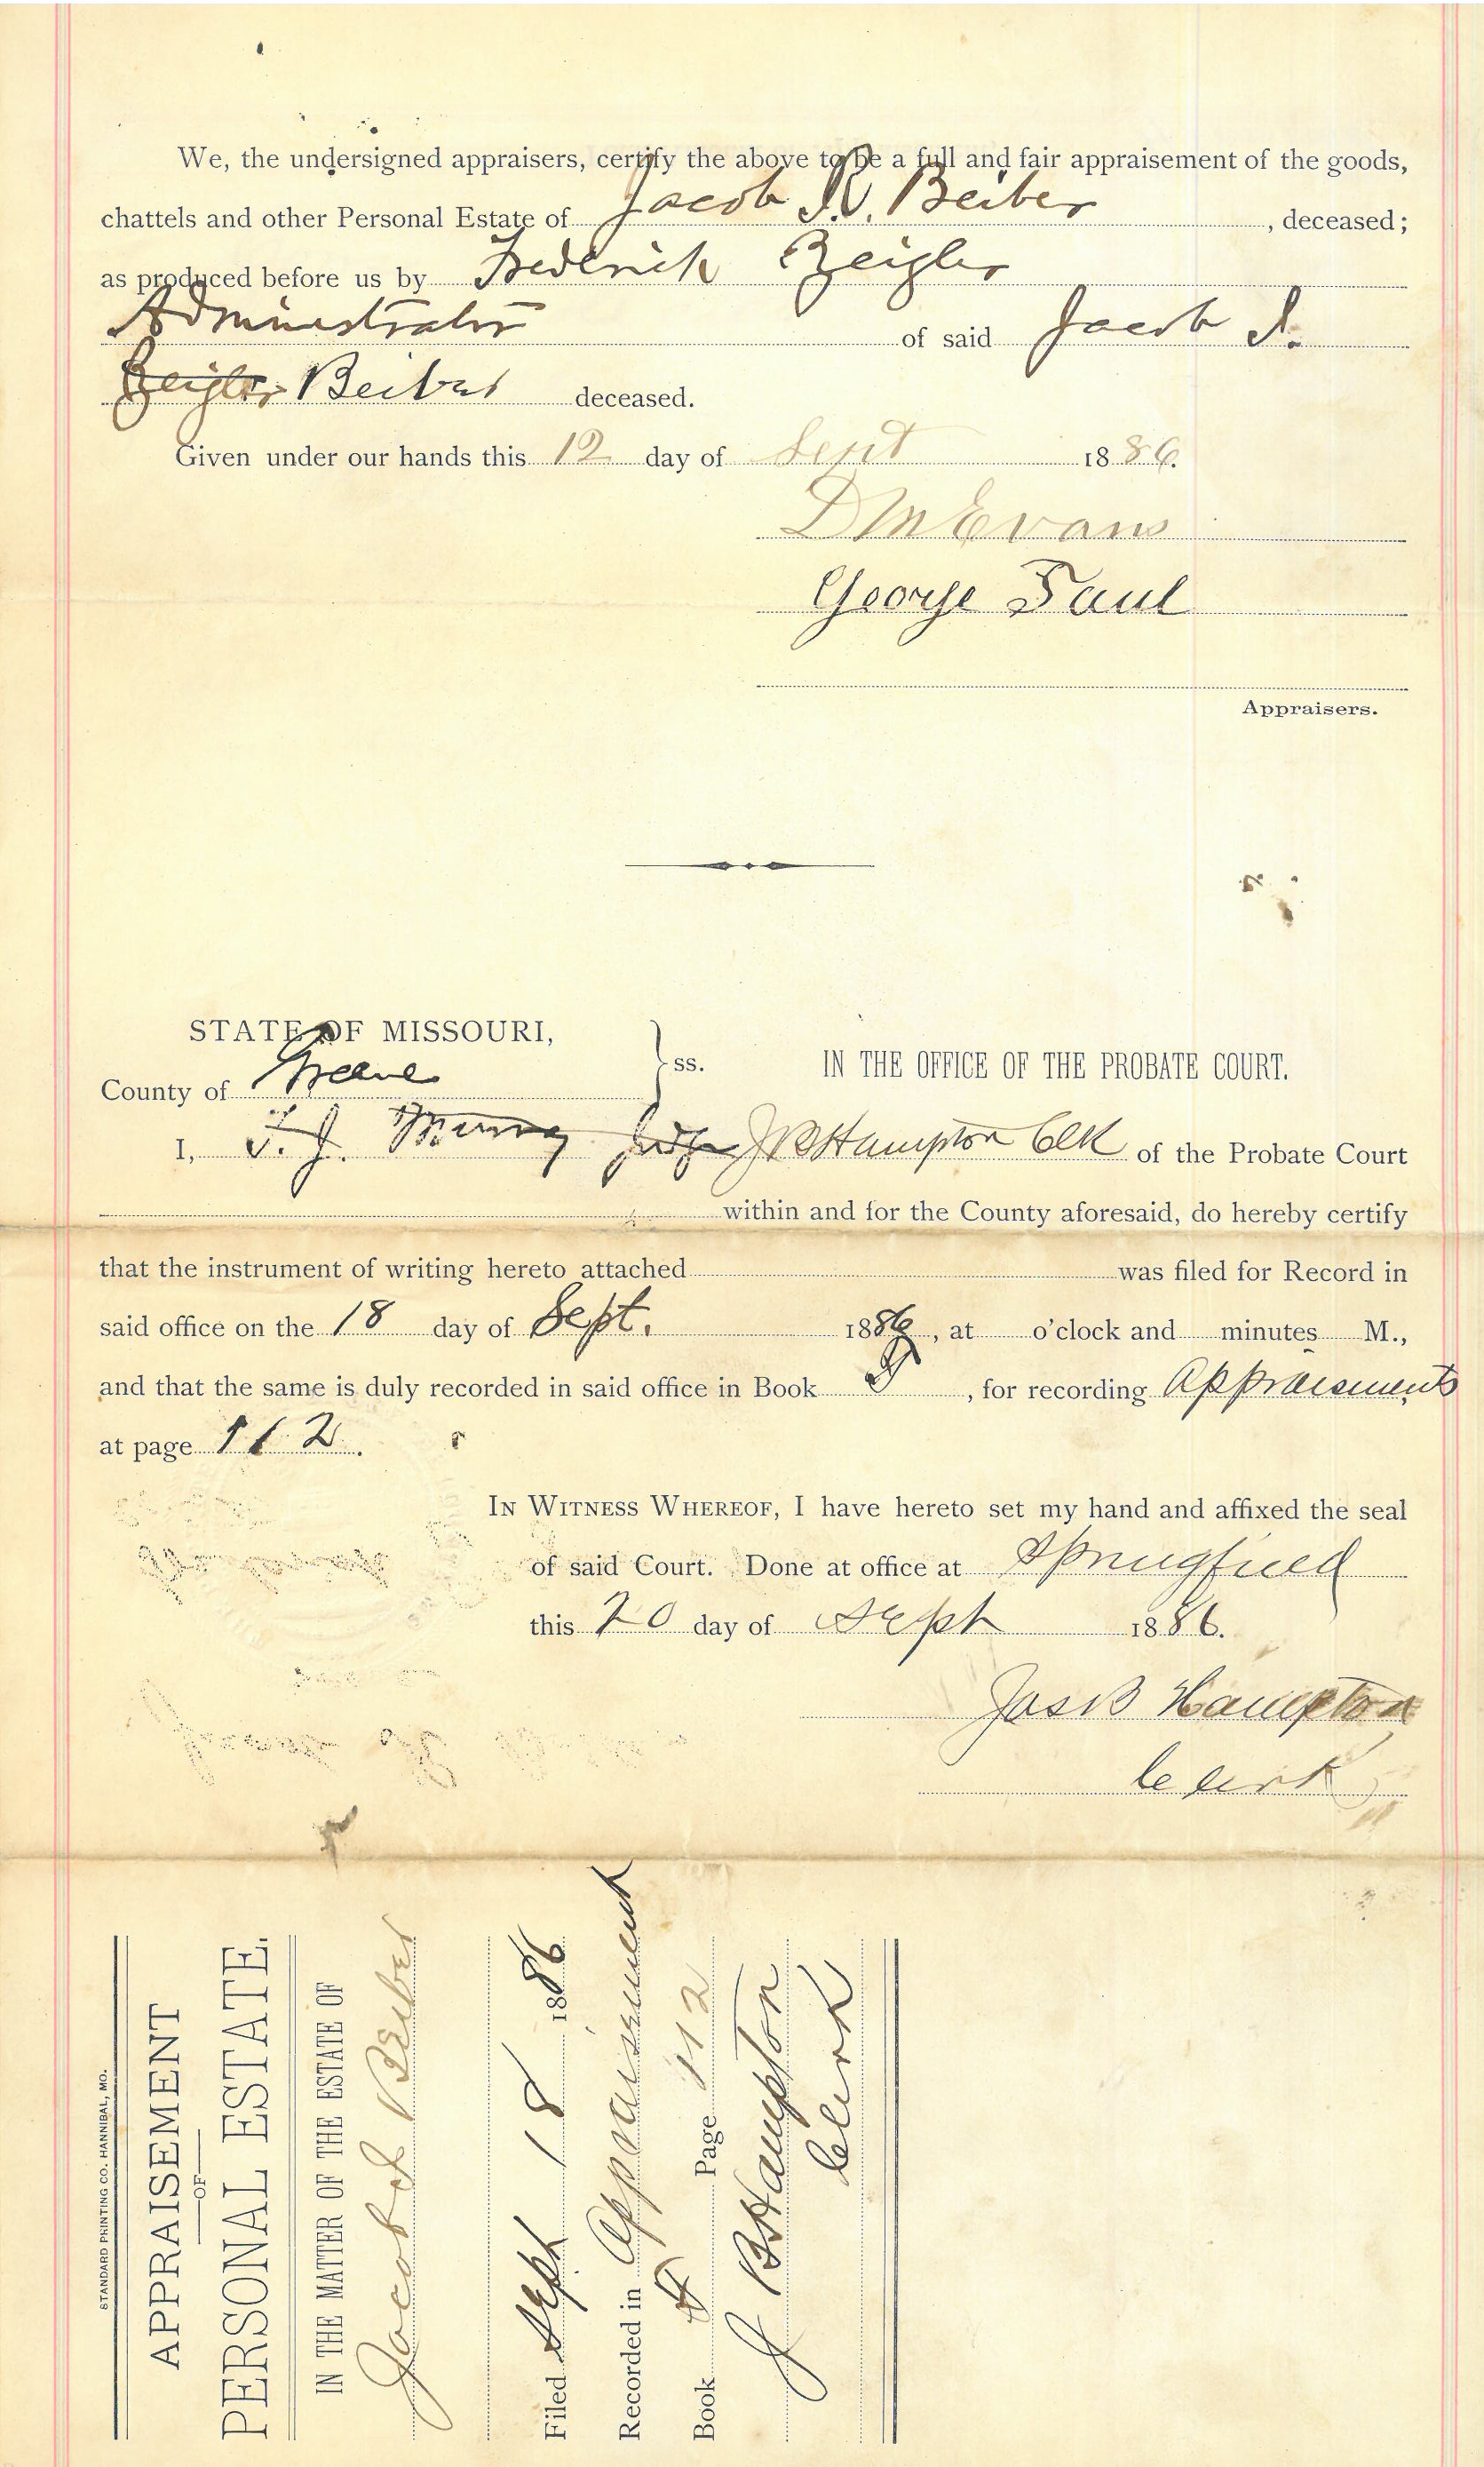 We, the undersigned appraisers, certify the above to be a full and fair appraisement of the goods,
chattels and other Personal Estate of Jacob I. Beiber, deceased;
as produced before us by Frederick Zeigler
Administrator of said Jacob I.
Zeigler Beiber deceased.
Given under our hands this 12 day of Sept 1886.
D M Evans
George Paul
Appraisers.
STATE OF MISSOURI,
County of Greene ss. IN THE OFFICE OF THE PROBATE COURT.
I, T. J. Murray Judge J B Hampton Clk of the Probate Court
within and for the County aforesaid, do hereby certify
that the instrument of writing hereto attached was filed for Record in
said office on the 18 day of Sept. 1886, at o'clock and minutes M.,
and that the same is duly recorded in said office in Book , for recording Appraisments
at page 112.
IN WITNESS WHEREOF, I have hereto set my hand and affixed the seal
of said Court. Done at office at Springfield
this 20 day of Sept 1886.
Jas B Hampton
Clerk
STANDARD PRINTING CO. HANNIBAL, MO.
APPRAISEMENT
OF
PERSONAL ESTATE.
IN THE MATTER OF THE ESTATE OF
Jacob I Beiber
Filed Sept 18 1886
Recorded in Appraisement
Book Page 112
J B Hampton
Clerk